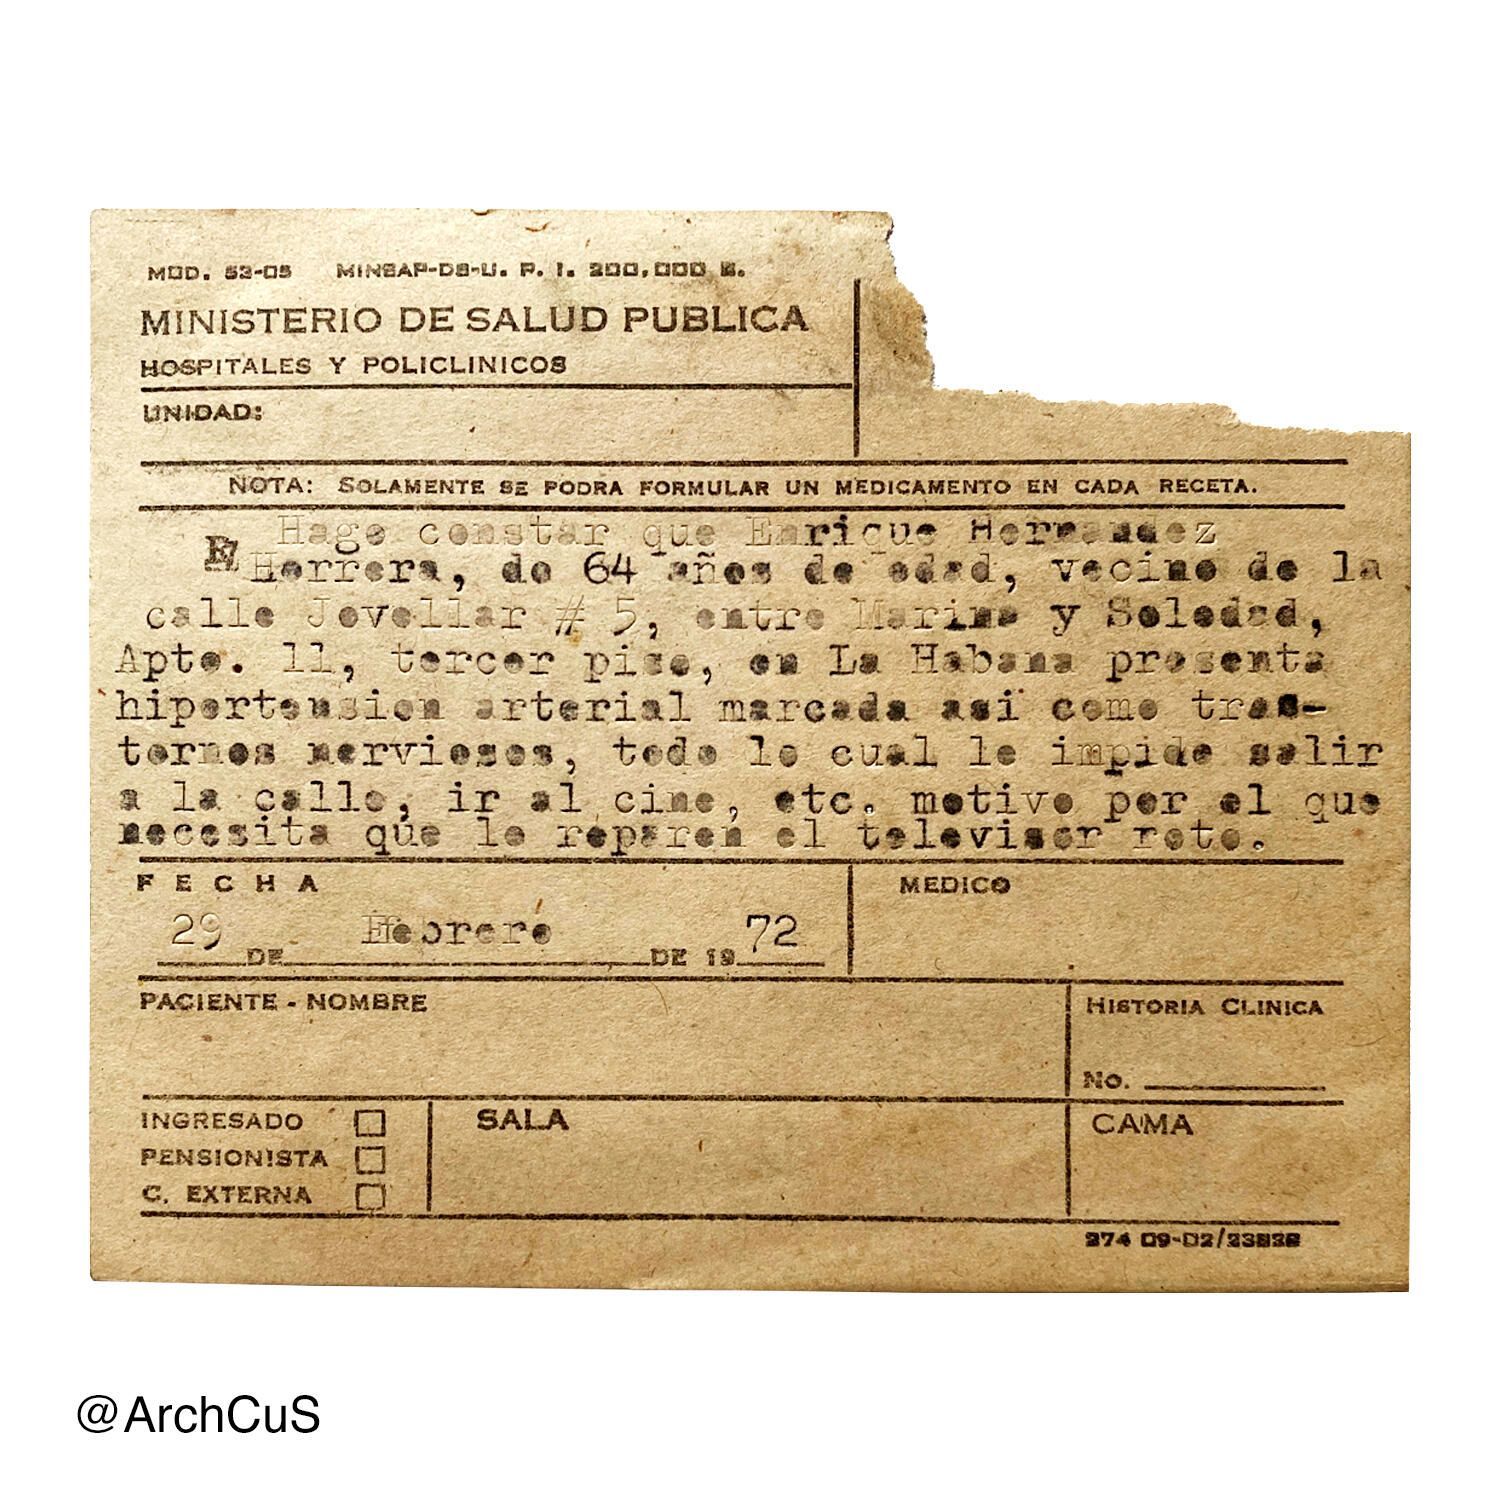 MOD. 53-05 MINSAP-DS-U. P. I. 200,000 E.
MINISTERIO DE SALUD PUBLICA
HOSPITALES Y POLICLINICOS
UNIDAD:
NOTA: SOLAMENTE SE PODRA FORMULAR UN MEDICAMENTO EN CADA RECETA.
Hago constar que Enrique Hernandez
Herrera, de 64 años de edad, vecino de la
calle Jovellar # 5, entre Marina y Soledad,
Apto. 11, tercer piso, en La Habana presenta
hipertension arterial marcada asi como tras-
tornos nerviosos, todo lo cual le impide salir
a la calle, ir al cine, etc. motivo por el que
necesita que le reparen el televisor roto.
FECHA
MEDICO
29 DE Febrero DE 1972
PACIENTE - NOMBRE
HISTORIA CLINICA
No.
INGRESADO
PENSIONISTA
C. EXTERNA
SALA
CAMA
274 09-02/23828
@ArchCuS